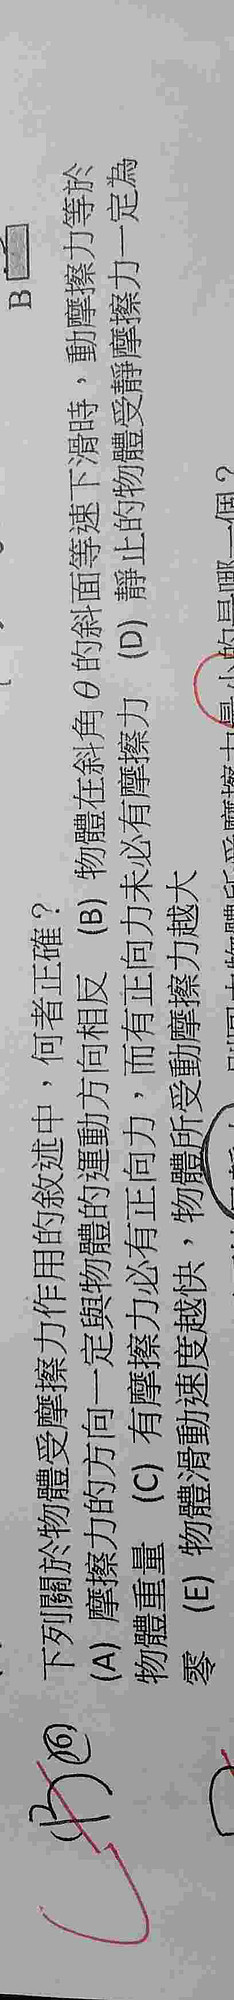 B
下列關於物體受摩擦力作用的敘述中，何者正確？
(A) 摩擦力的方向一定與物體的運動方向相反 (B) 物體在斜角 θ 的斜面等速下滑時，動摩擦力等於
物體重量 (C) 有摩擦力必有正向力，而有正向力未必有摩擦力 (D) 靜止的物體受靜摩擦力一定為
零 (E) 物體滑動速度越快，物體所受動摩擦力越大